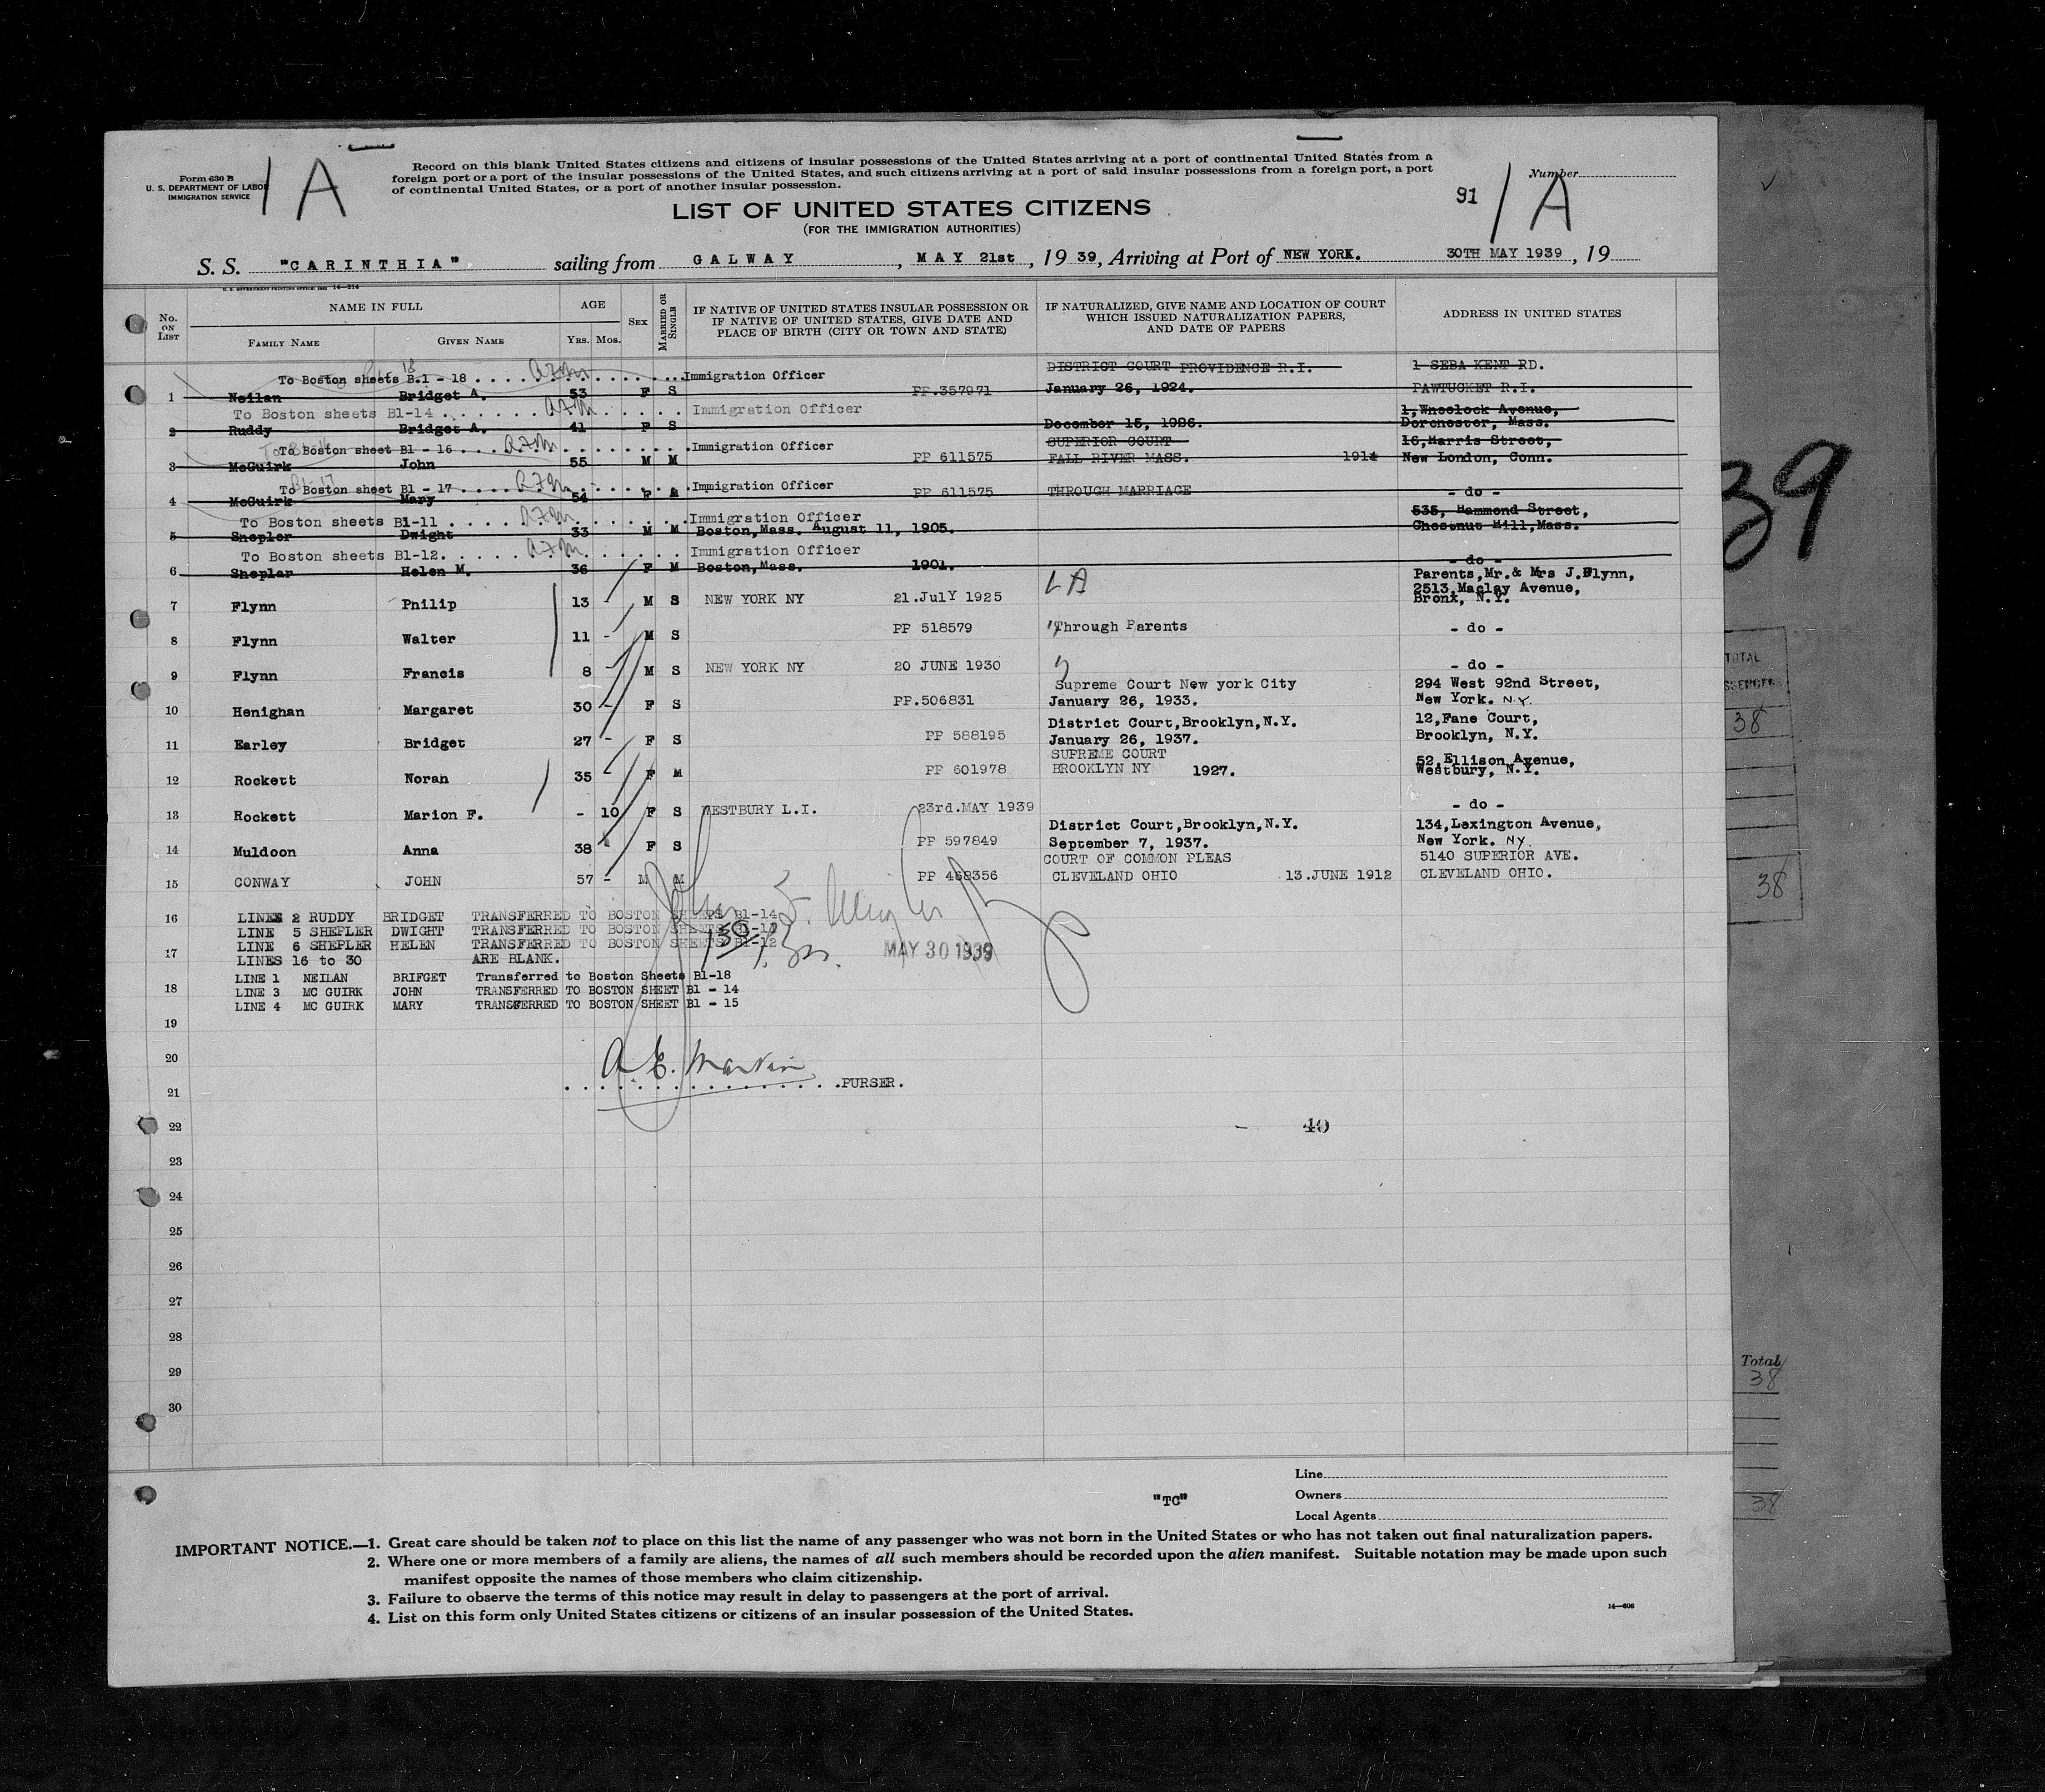 Form 630 B
U. S. DEPARTMENT OF LABOR
IMMIGRATION SERVICE
1A
Record on this blank United States citizens and citizens of insular possessions of the United States arriving at a port of continental United States from a
foreign port or a port of the insular possessions of the United States, and such citizens arriving at a port of said insular possessions from a foreign port, a port
of continental United States, or a port of another insular possession.
Number
91 1A
LIST OF UNITED STATES CITIZENS
(FOR THE IMMIGRATION AUTHORITIES)
S. S. "CARINTHIA" sailing from GALWAY, MAY 21st, 19 39, Arriving at Port of NEW YORK. 30TH MAY 1939, 19
No. ON LIST NAME IN FULL AGE SEX MARRIED OR SINGLE IF NATIVE OF UNITED STATES INSULAR POSSESSION OR IF NATIVE OF UNITED STATES, GIVE DATE AND PLACE OF BIRTH (CITY OR TOWN AND STATE) IF NATURALIZED, GIVE NAME AND LOCATION OF COURT WHICH ISSUED NATURALIZATION PAPERS, AND DATE OF PAPERS ADDRESS IN UNITED STATES
FAMILY NAME GIVEN NAME YRS. MOS.
To Boston sheets B.1 - 18 Immigration Officer DISTRICT COURT PROVIDENCE R.I. 1 SEBA KENT RD.
1 Neilan Bridget A. 53 F S PP.357971 January 26, 1924. PAWTUCKET R.I.
To Boston sheets B1-14 Immigration Officer 1, Wheelock Avenue,
2 Ruddy Bridget A. 41 F S December 15, 1926. Dorchester, Mass.
To Boston sheet B1 - 16 Immigration Officer SUPERIOR COURT 16, Harris Street,
3 McGuirk John 55 M M PP 611575 FALL RIVER MASS. 1914 New London, Conn.
To Boston sheet B1 - 17 Immigration Officer
4 McGuirk Mary 54 F PP 611575 THROUGH MARRIAGE - do -
To Boston sheets B1-11 Immigration Officer 535, Hammond Street,
5 Shepler Dwight 33 M M Boston, Mass. August 11, 1905. Chestnut Hill, Mass.
To Boston sheets B1-12. Immigration Officer
6 Shepler Helen M. 36 F M Boston, Mass. 1901. - do -
Parents, Mr. & Mrs J. Flynn,
2513, Maclay Avenue,
7 Flynn Philip 13 - M S NEW YORK NY 21.JulY 1925 Bronx, N.Y.
8 Flynn Walter 11 - M S PP 518579 Through Parents - do -
9 Flynn Francis 8 - M S NEW YORK NY 20 JUNE 1930 - do -
Supreme Court New york City 294 West 92nd Street,
10 Henighan Margaret 30 - F S PP.506831 January 26, 1933. New York. N.Y.
District Court, Brooklyn, N.Y. 12, Fane Court,
11 Earley Bridget 27 - F S PP 588195 January 26, 1937. Brooklyn, N.Y.
SUPREME COURT 52, Ellison Avenue,
12 Rockett Norah 35 - F M PP 601978 BROOKLYN NY 1927. Westbury, N.Y.
13 Rockett Marion F. - 10 F S WESTBURY L.I. 23rd.MAY 1939 - do -
District Court, Brooklyn, N.Y. 134, Lexington Avenue,
14 Muldoon Anna 38 F S PP 597849 September 7, 1937. New York. NY.
COURT OF COMMON PLEAS 5140 SUPERIOR AVE.
15 CONWAY JOHN 57 - M M PP 468356 CLEVELAND OHIO 13.JUNE 1912 CLEVELAND OHIO.
16 LINES 2 RUDDY BRIDGET TRANSFERRED TO BOSTON SHEETS B1-14
LINE 5 SHEPLER DWIGHT TRANSFERRED TO BOSTON SHEETS B1-11
LINE 6 SHEPLER HELEN TRANSFERRED TO BOSTON SHEETS B1-12
17 LINES 16 to 30 ARE BLANK.
MAY 30 1939
LINE 1 NEILAN BRIFGET Transferred to Boston Sheets B1-18
18 LINE 3 MC GUIRK JOHN TRANSFERRED TO BOSTON SHEET B1 - 14
LINE 4 MC GUIRK MARY TRANSFERRED TO BOSTON SHEET B1 - 15
19
20
A E. Martin
PURSER.
21
22 - 40
23
24
25
26
27
28
29
30
Line
"TC" Owners
Local Agents
IMPORTANT NOTICE.—1. Great care should be taken not to place on this list the name of any passenger who was not born in the United States or who has not taken out final naturalization papers.
2. Where one or more members of a family are aliens, the names of all such members should be recorded upon the alien manifest. Suitable notation may be made upon such
manifest opposite the names of those members who claim citizenship.
3. Failure to observe the terms of this notice may result in delay to passengers at the port of arrival.
4. List on this form only United States citizens or citizens of an insular possession of the United States.
14—606
39
TOTAL
38
38
Total
38
38